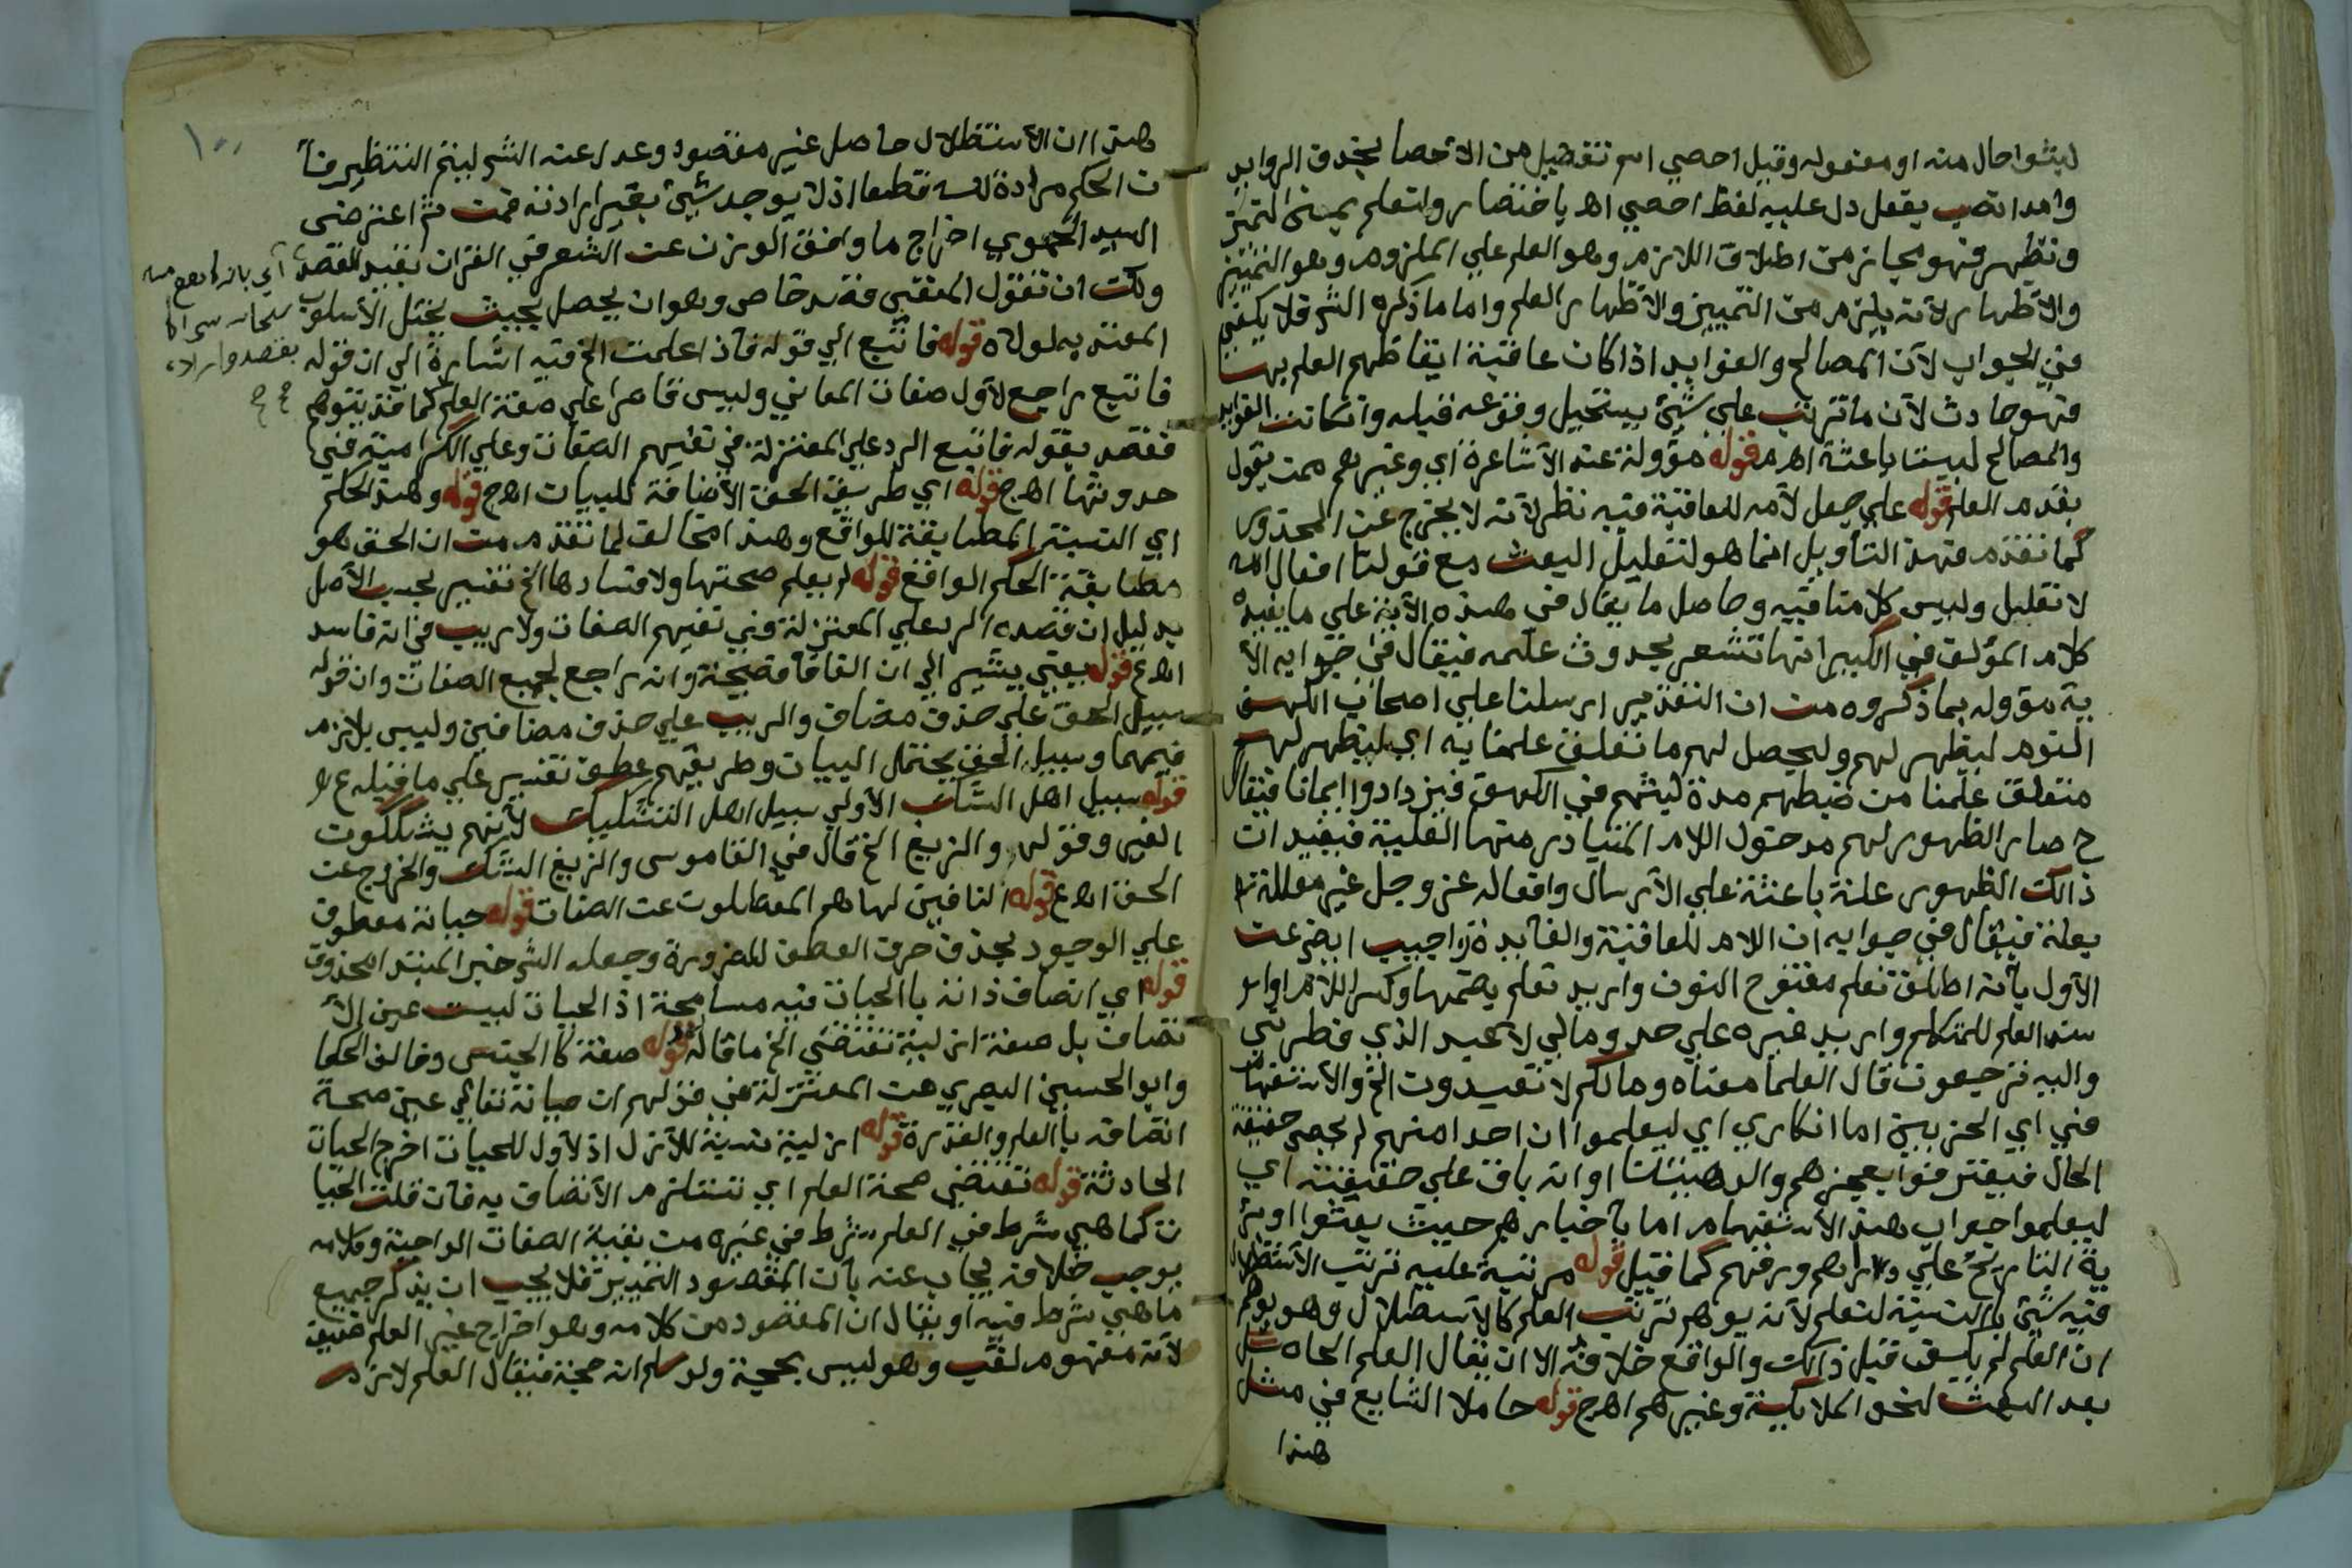 لبثوا حال منه او مفعوله وقيل احصي اسم تفضيل من الاحصا بحذف الزوايد
وامدا نصب بفعل دل عليه لفظ احصي اهـ باختصار ولتعلم بمعني لتميز
وتظهر فهو مجاز من اطلاق اللازم وهو العلم علي الملزوم وهو التمييز
والاظهار لانه يلزم من التمييز والاظهار العلم واما ما ذكره الشر فلا يكفي
في الجواب لان المصالح والفوايد اذا كان عاقبة ايقاظهم العلم بها
فهو حادث لان ما ترتب علي شيئ يستحيل وقوعه قبله وان كانت الفوايد
والمصالح ليست باعثة اهـ قوله مؤولة عند الاشاعرة اي وغيرهم ممن يقول
بقدم العلم قوله علي جعل لامه للعاقبة فيه نظر لانه لا يخرج عن المحذور
كما تقدم فهذ التأويل انما هو لتعليل البعث مع قولنا افعال الله
لا تعليل وليس كلامنا فيه وحاصل ما يقال في هذه الآية علي ما يفيده
كلام المؤلف في الكبير انها تشعر بحدوث علمه فيقال في جوابه الآ
ية مؤوله بما ذكروه من ان التقدير ارسلنا علي اصحاب الكهف
النوم ليظهر لهم وليحصل لهم ما تعلق علمنا به اي ليظهر لهم
متعلق علمنا من ضبطهم مدة لبثهم في الكهف فيزدادوا ايمانا فيقال
ح صار الظهور لهم مدخول اللام المتبادر منها العلية فيفيد ان
ذالك الظهور علة باعثة علي الارسال وافعاله عز وجل غير معللة
بعلة فيقال في جوابه ان اللام للعاقبة والفايدة واجيب ايض عن
الاول بانه اطلق نعلم مفتوح النون واريد نعلم بضمها وكسر اللام او
سند العلم للمتكلم واريد غيره علي حد ومالي لا اعبد الذي فطرني
واليه ترجعون قال العلما معناه ومالكم لا تعبدون الخ والاستفهام
في اي الحزبين اما انكاري اي ليعلموا ان احدا منهم لم يحص حقيقة
الحال فيعترفوا بعجزهم او انه باق علي حقيقته اي
ليعلموا جواب هذ الاستفهام اما باخبارهم حيث يعثوا او
ية التاريخ علي دراهم ورقهم كما قيل قوله مرتبة عليه ترتب الاستظلال
فيه شيئ بالنسبة لتعلم لانه يوهم ترتب العلم كالاستظلال وهو يوهم
ان العلم لم يسبق قبل ذالك والواقع خلافه الا ان يقال العلم الحاصل
بعد البعث لنحو الملائكة وغيرهم اهـ ج قوله حاملا التابع في مثل
هذا
هذا ان الاستظلال حاصل غير مقصود وعدل عنه الشر ليتم التنظير فا
ن الحكم مرادة لله قطعا اذ لا يوجد شيئ بغير ارادته فمن ثم اعترض
السيد الحموي اخراج ما وافق الوزن عن الشعر في القران بقيد القصد
ولك ان تقول المنفي قصد خاص وهو ان يحصل بحيث يختل الاسلوب
المعتد به لولاه قوله فاتبع الي قوله فاذا علمت الخ فيه اشارة الي ان قوله
فاتبع راجع لاول صفات المعاني وليس قاصرا علي صفة العلم كما قد يتوهم
فقصد بقوله فاتبع الرد علي المعتزلة في نفيهم الصفات وعلي الكرامية في
حدوثها اهـ ج قوله اي طريق الحق الاضافة للبيان اهـ ج قوله وهذ الحكم
اي النسبة المطابقة للواقع وهذ امخالف لما تقدم من ان الحق هو
مطابقة الحكم الواقع قوله لم يعلم صحتها ولا فسادها الخ تفسير بحسب الاصل
بدليل ان قصده الرد علي المعتزلة في نفيهم الصفات ولا ريب في انه فاسد
اهـ ع قوله يعني يشير الي ان الفا فصيحة وانه راجع لجميع الصفات وان قوله
سبيل الحق علي حذف مضاف والريب علي حذف مضافين وليس بلازم
فيهما وسبيل الحق يحتمل البيان وطريقهم عطف تفسير علي ما قبله ع
قوله سبيل اهل الشك الاولي سبيل اهل التشكيك لانهم يشككون
الغير وقوله والزيغ الخ قال في القاموس والزيغ الشك والخروج عن
الحق اهـ ع قوله النافين لها هم المعطلون عن الصفات قوله حياته معطوف
علي الوجود بحذف حرف العطف للضرورة وجعله الشر خبر المبتد المحذوف
قوله اي اتصاف ذاته بالحيات فيه مسامحة اذ الحيات ليست عين الا
تصاف بل صفة ازلية تقتضي الخ ما قاله قوله صفة كالجنس وخالف الحكما
وابو الحسين البصري من المعتزلة في قولهم ان حياته تعالي عين صحة
اتصافه بالعلم والقدرة قوله ازلية نسبة للازل اذ لا اول للحيات اخرج الحيات
الحادثة قوله تقتضي صحة العلم اي تستلزم الاتصاف به فان قلت الحيا
ت كما هي شرط في العلم شرط في غيره من بقية الصفات الواجبة وكلامه
يوجب خلافه يجاب عنه بان المقصود التمييز فلا يجب ان يذكر جميع
ما هي شرط فيه او يقال ان المقصود من كلامه وهو اخراج غير العلم
لانه مفهوم لقب وهو ليس بحجة ولو سلم انه حجة فيقال العلم لازم